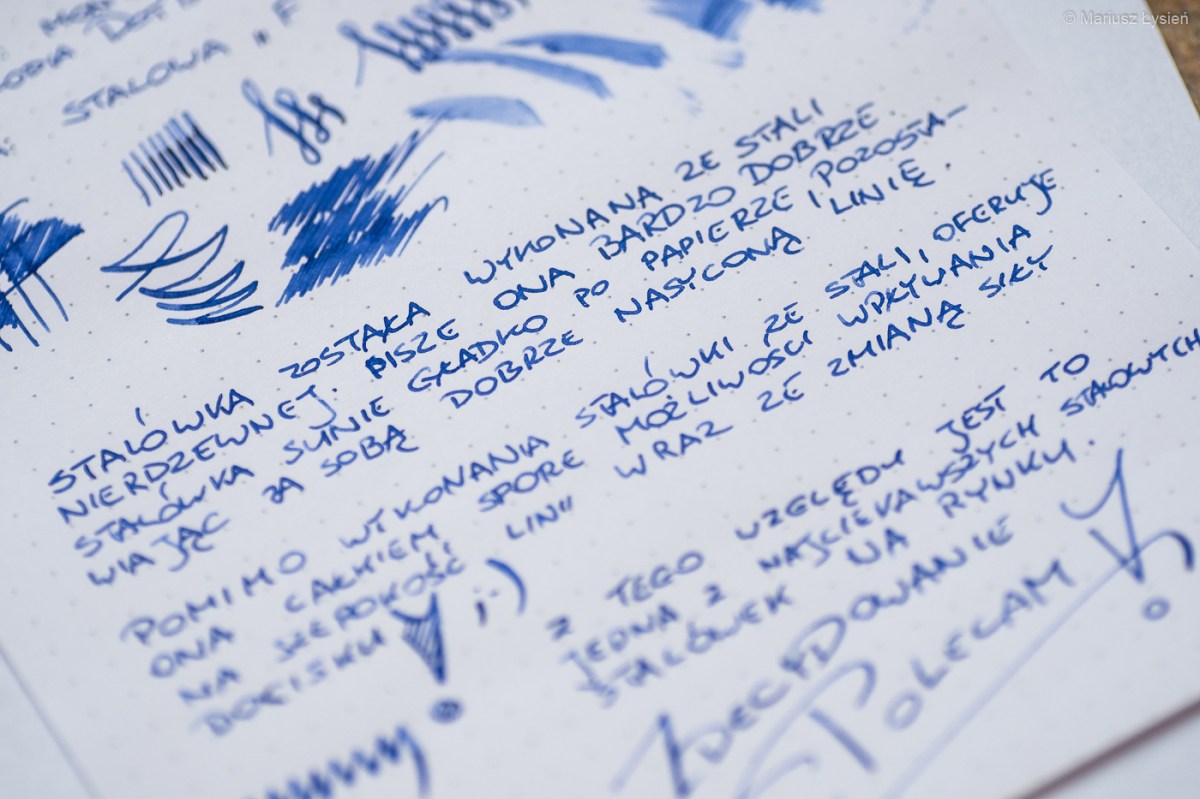 © Mariusz Łysień
STALOWA „F
STALÓWKA ZOSTAŁA WYKONANA ZE STALI
NIERDZEWNEJ. PISZE ONA BARDZO DOBRZE
STALÓWKA SUNIE GŁADKO PO PAPIERZE I POZOSTA-
WIAJĄC ZA SOBĄ DOBRZE NASYCONĄ LINIĘ.
POMIMO WYKONANIA STALÓWKI ZE STALI, OFERUJE
ONA CAŁKIEM SPORE MOŻLIWOŚCI WPŁYWANIA
NA SZEROKOŚĆ LINII WRAZ ZE ZMIANĄ SIŁY
DOCISKU ! ;-)
Z TEGO WZGLĘDU JEST TO
JEDNA Z NAJCIEKAWSZYCH STALOWYCH
STALÓWEK NA RYNKU.
ZDECYDOWANIE
POLECAM !